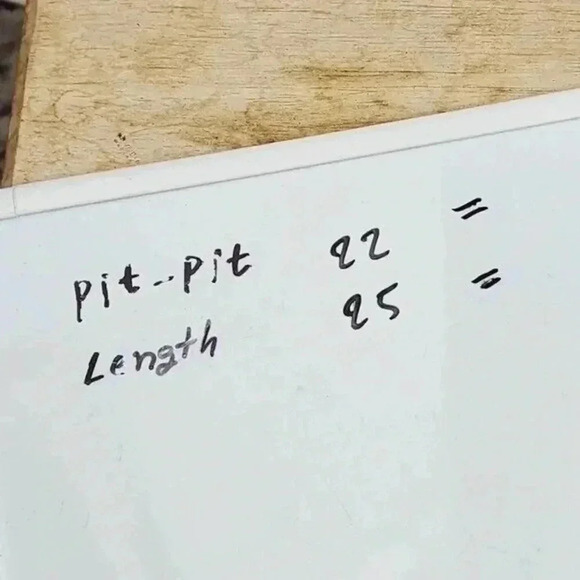 pit--pit 22 =
Length 25 =